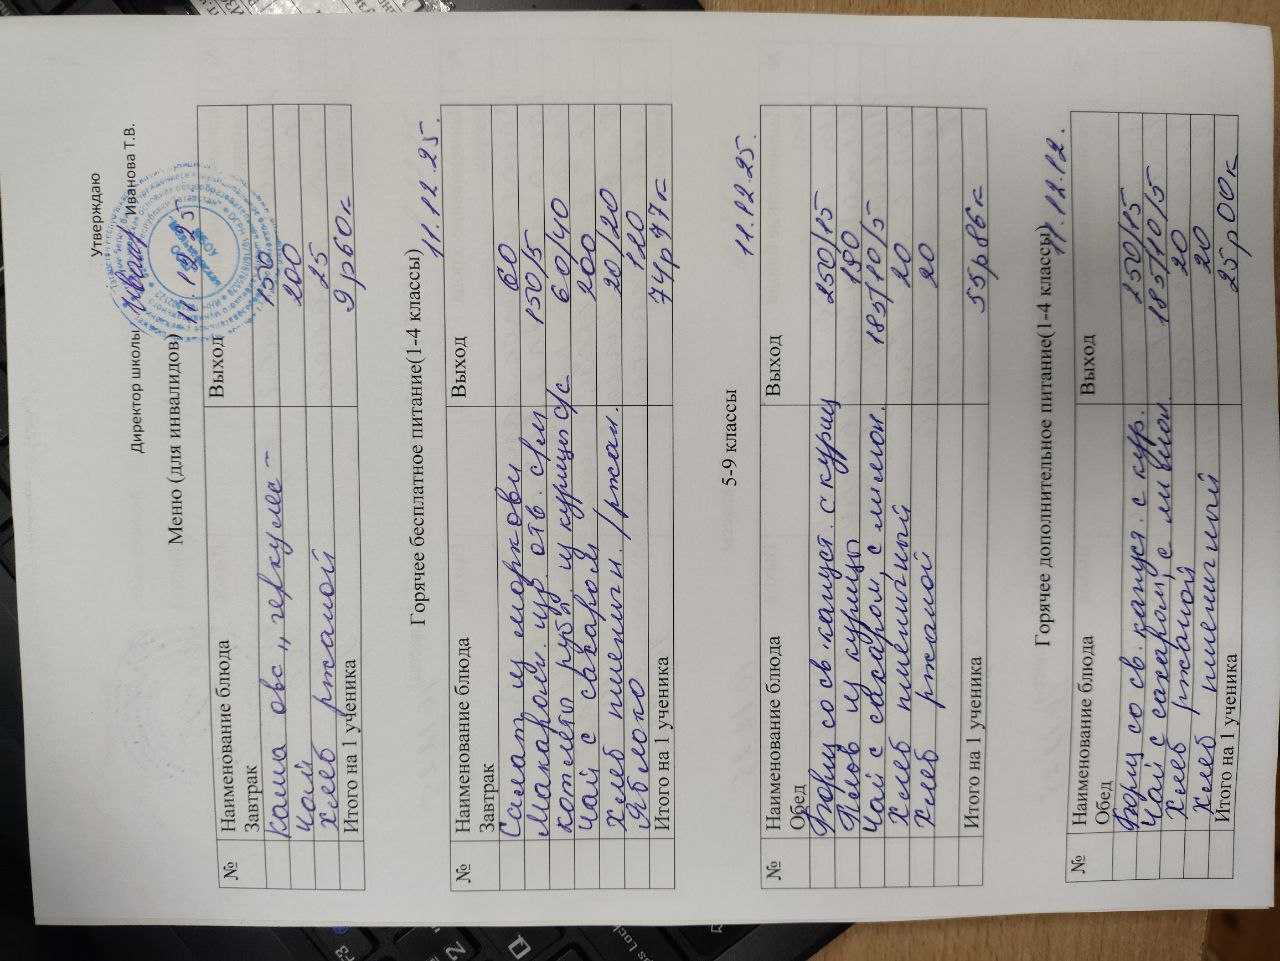 Утверждаю
Директор школы Иванова Т.В.
Меню (для инвалидов) 11.12.25
№ Наименование блюда Выход
Завтрак
Каша овс „геркулес" 150
Чай 200
Хлеб ржаной 25
Итого на 1 ученика 9р60к
Горячее бесплатное питание(1-4 классы) 11.12.25.
№ Наименование блюда Выход
Завтрак
Салат из моркови 60
Макарон. из. отв. с/м 150/5
котлеты руб. из курицы с/с 60/40
Чай с сахаром 200
Хлеб пшеничн. /ржан. 20/20
Яблоко 120
Итого на 1 ученика 74р97к
5-9 классы 11.12.25.
№ Наименование блюда Выход
Обед
Борщ со св. капуст. с куриц 250/15
Плов из курицы 150
Чай с сахаром, с лимон. 185/10/5
Хлеб пшеничный 20
Хлеб ржаной 20
Итого на 1 ученика 55р86к
Горячее дополнительное питание(1-4 классы) 11.12.12.
№ Наименование блюда Выход
Обед
Борщ со св. капуст. с кур. 250/15
Чай с сахаром, с лимон. 185/10/5
Хлеб ржаной 20
Хлеб пшеничный 20
Итого на 1 ученика 25р00к